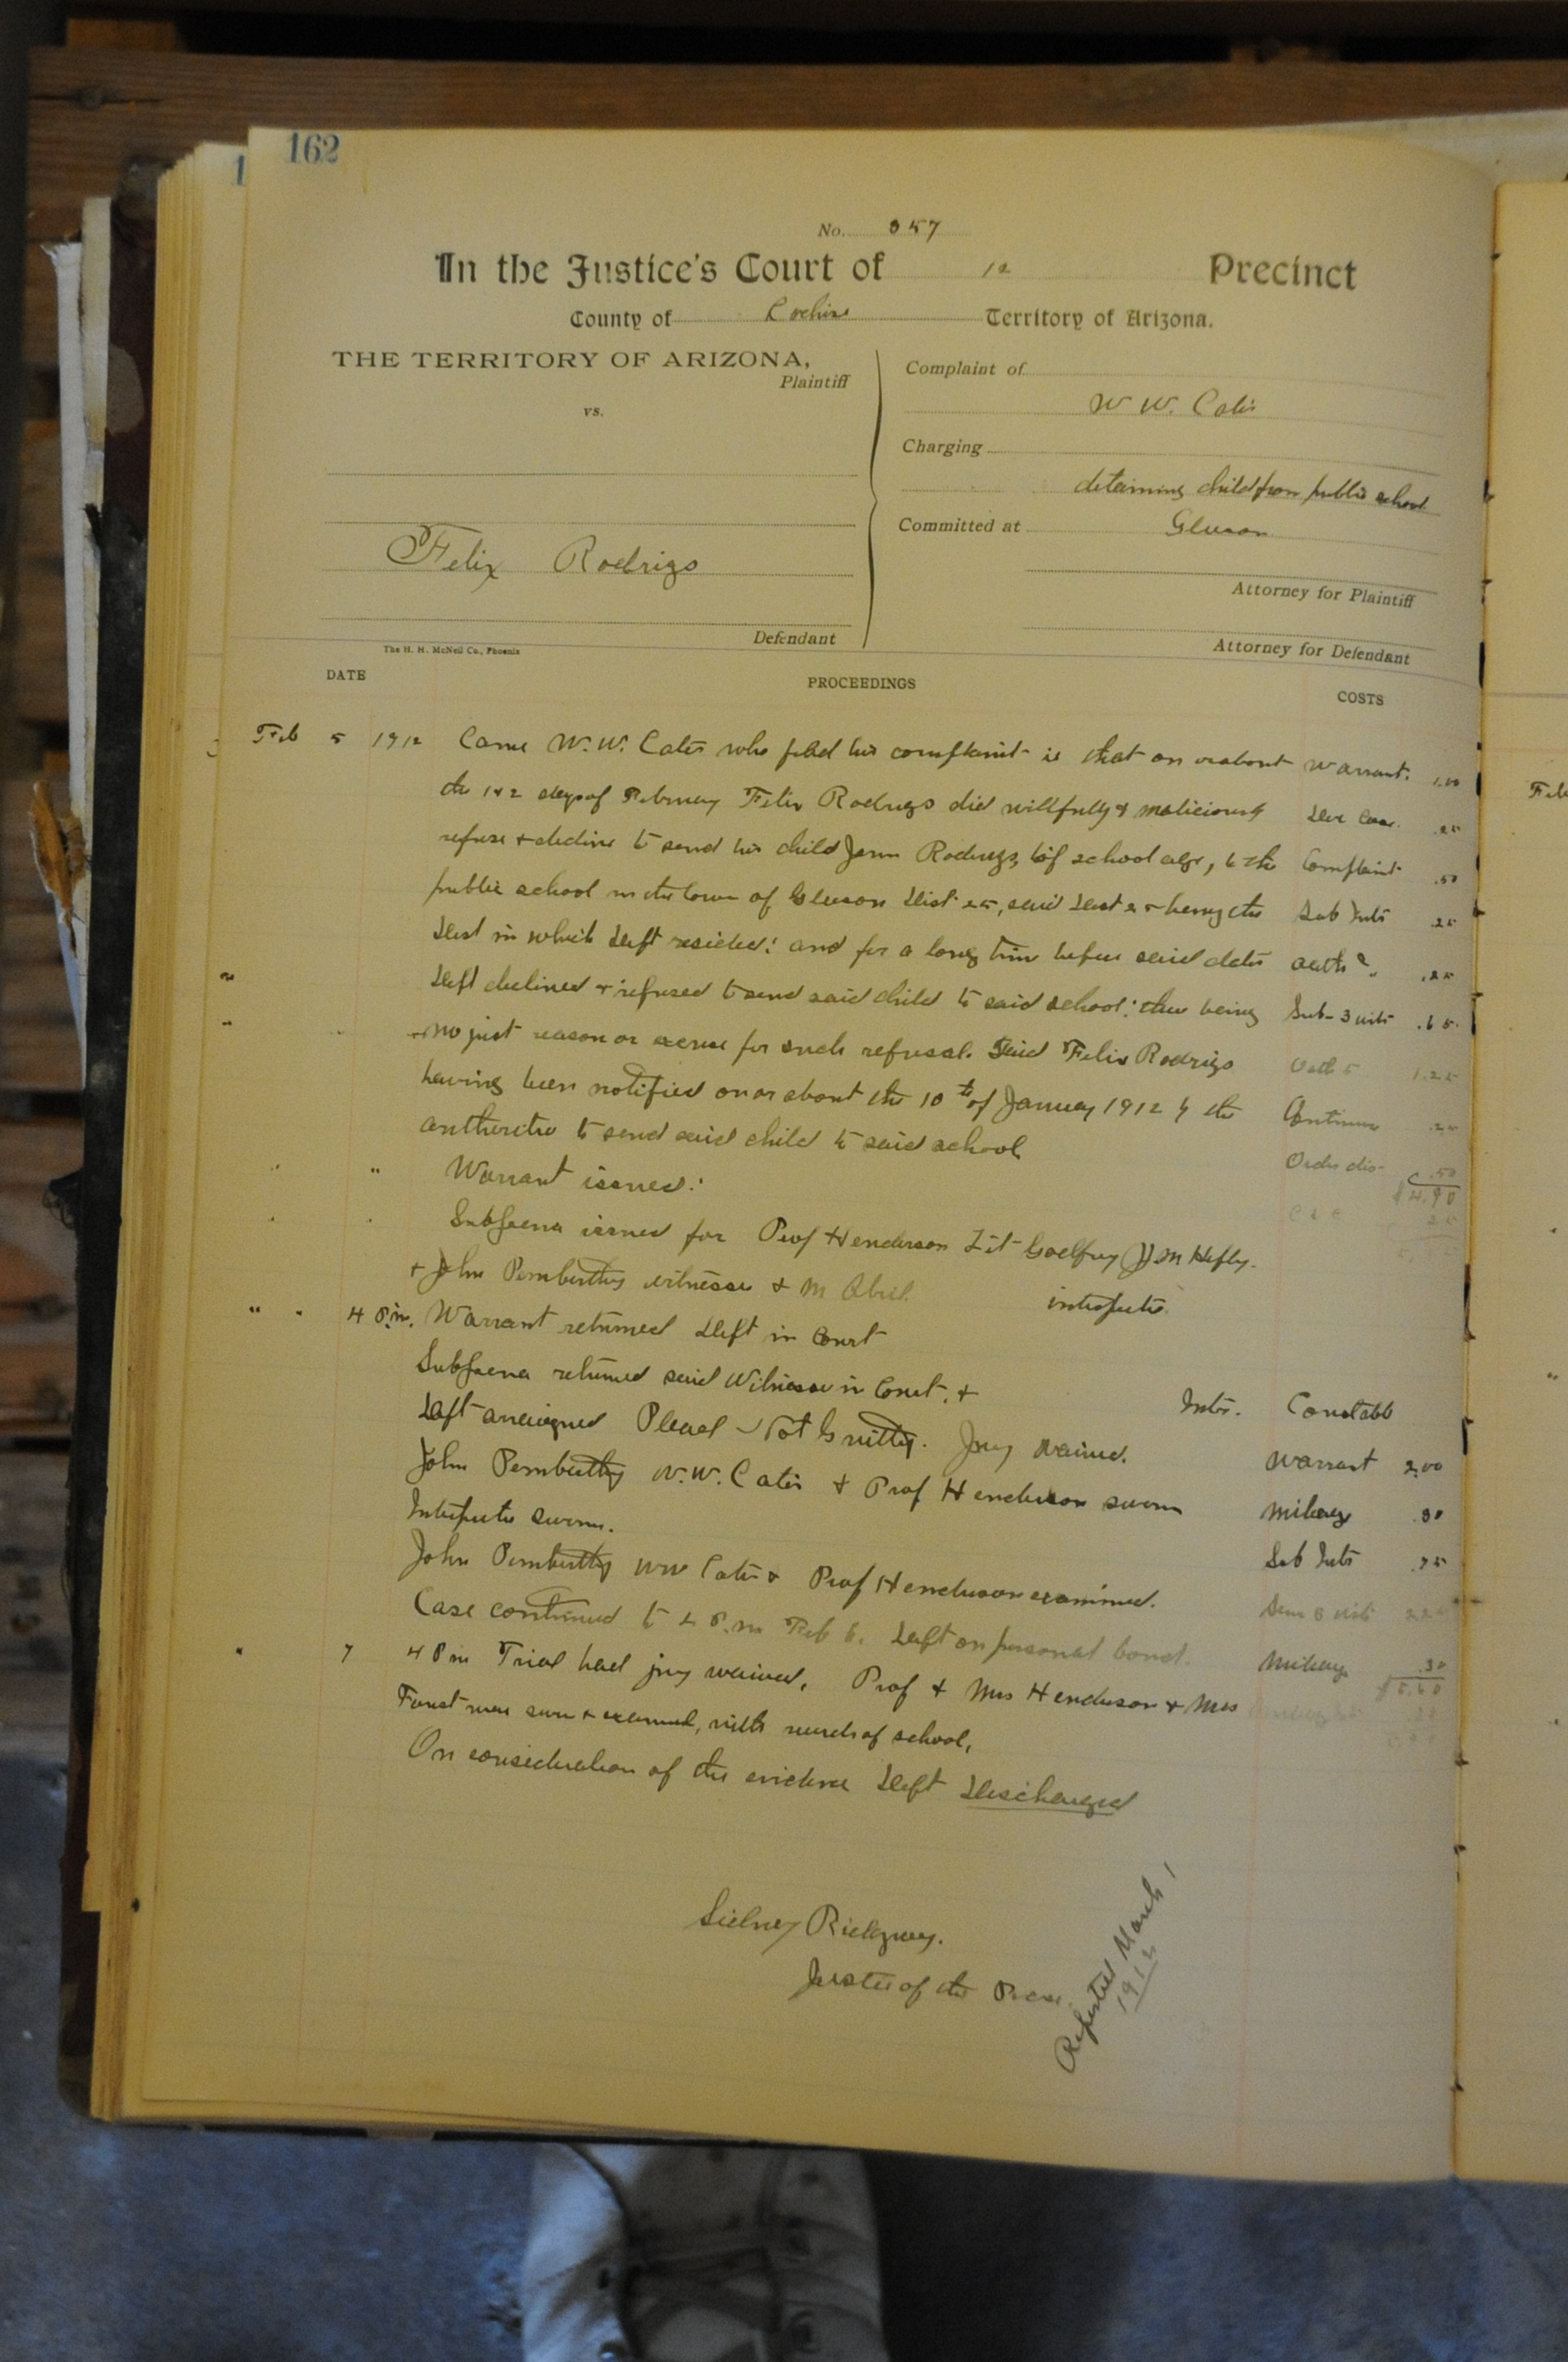 162
1
No. 357
In the Justice's Court of 12 Precinct
County of Cochise Territory of Arizona.
THE TERRITORY OF ARIZONA,
Plaintiff
vs.
Felix Rodrigo
Defendant
Complaint of
W. W. Cates
Charging
detaining child from public school
Committed at Gleeson
Attorney for Plaintiff
Attorney for Defendant
The H. H. McNeil Co., Phoenix
DATE PROCEEDINGS COSTS
Feb 5 1912 Came W. W. Cates who filed his complaint is that on or about Warrant. 1.00
the 1 & 2 days of February Felix Rodrigo did willfully & maliciously .25
refuse & decline to send his child Rodrigo, of school age, to the Complaint .50
public school in the town of Gleeson Dist 25, said Dist 25 being the Sub Intr .25
Dist in which Deft resided; and for a long time before said date oath .25
Deft declined & refused to send said child to said school; there being Sub- 3 wits .65
no just reason or excuse for such refusal. Said Felix Rodrigo oath 5 1.25
having been notified on or about the 10th of January 1912 by the Continue
authorities to send said child to said school Order dis- .50
" Warrant issued: $4.90
Subpoena issued for Prof Henderson Godfrey J M Hefly.
& John Pemberthy witnesses & M Abril interpreter.
" 4 P.m. Warrant returned Deft in Court
Subpoena returned said Witnesses in Court. &
Intr. Constable
Deft arraigned Plead Not Guilty. Jury waived.
Warrant 2.00
John Pemberthy W. W. Cates & Prof Henderson sworn
Mileage .30
Interpreter sworn.
Sub Intr .75
John Pemberthy WW Cates & Prof Henderson examined.
Case continued to P.m Feb 6. Deft on personal bond.
Mileage .30
" 7 4 Pm Trial had jury waived, Prof & Mrs Henderson & Mrs
were sworn & examined, with records of school,
On consideration of the evidence Deft Discharged
Sidney Ridgway.
Justice of the Peace.
Reported March 1
1912
Feb
"